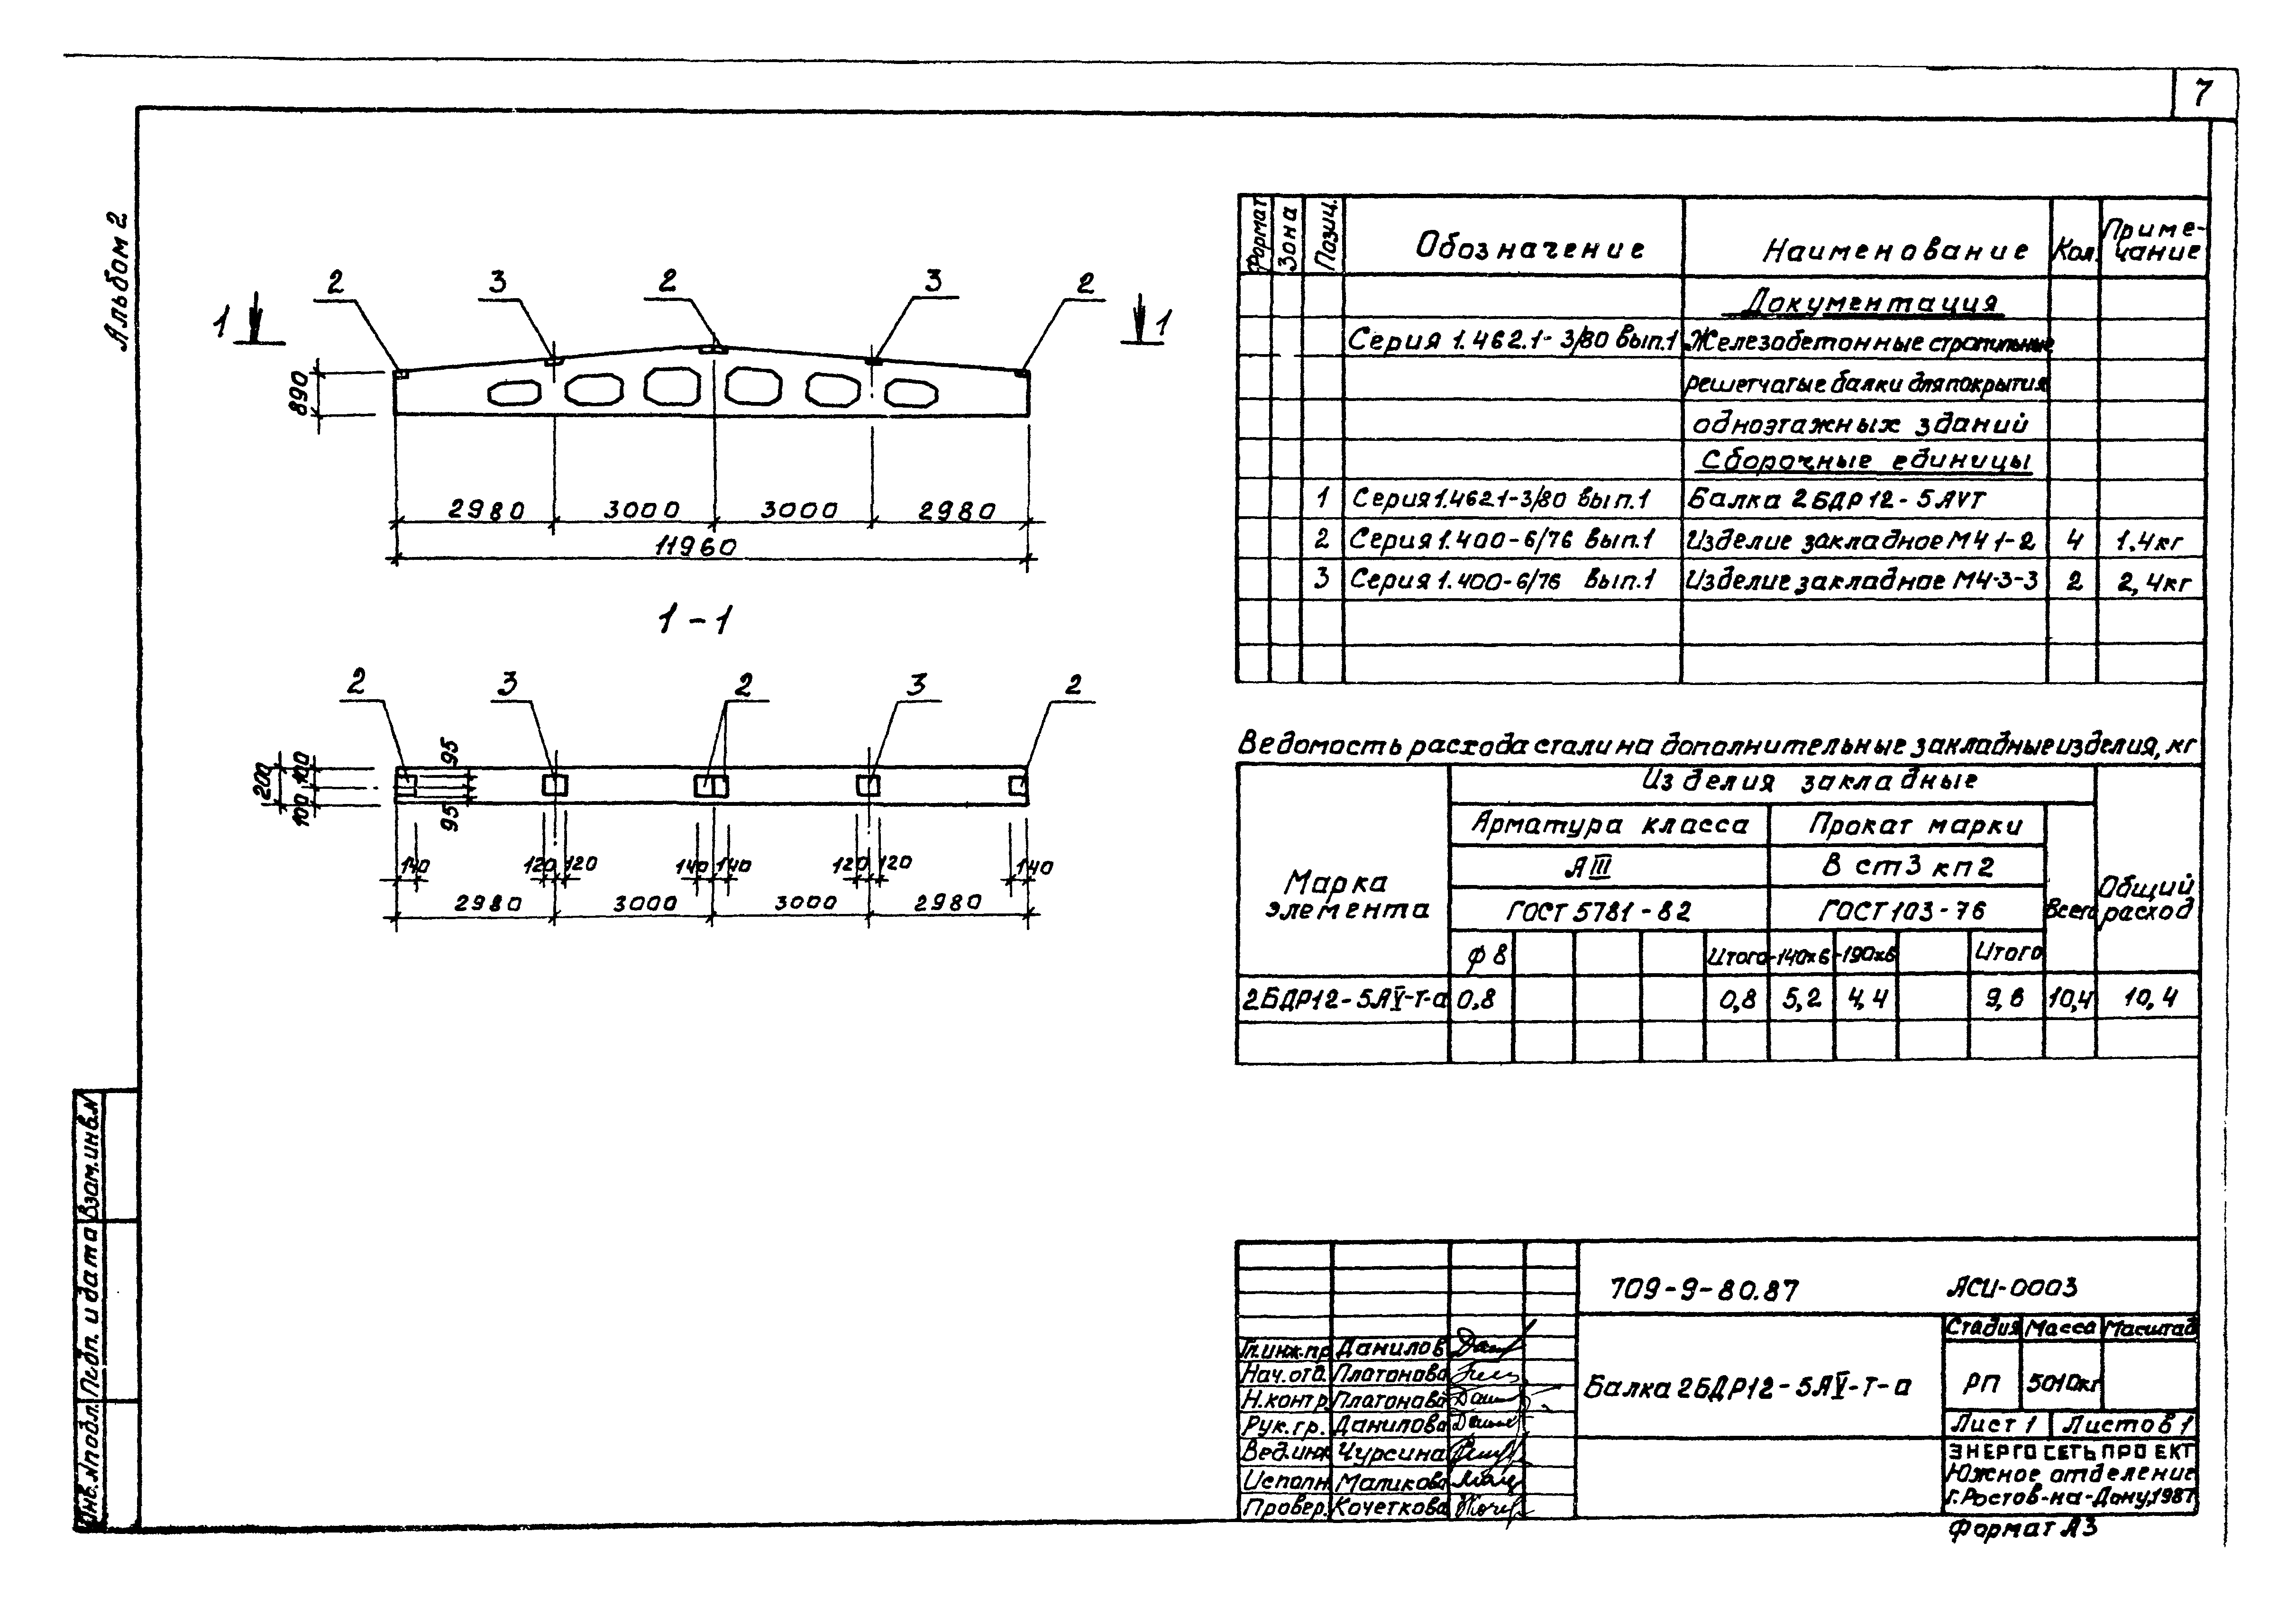 7
Альбом 2
2 3 2 3 2
1 1
890
2980 3000 3000 2980
11960
1-1
2 3 2 3 2
200 100 100 95 95
140 120 120 140 140 120 120 140
2980 3000 3000 2980
Формат Зона Позиц. Обозначение Наименование Кол. Приме-
чание
Документация
Серия 1.462.1-3/80 вып.1 Железобетонные стропильные
решетчатые балки для покрытия
одноэтажных зданий
Сборочные единицы
1 Серия 1.462.1-3/80 вып.1 Балка 2БДР12-5АVТ
2 Серия 1.400-6/76 вып.1 Изделие закладное М4 1-2 4 1,4кг
3 Серия 1.400-6/76 вып.1 Изделие закладное М4-3-3 2 2,4кг
Ведомость расхода стали на дополнительные закладные изделия, кг
Марка
элемента
Изделия закладные
Арматура класса Прокат марки
АIII В ст3 кп2
ГОСТ 5781-82 ГОСТ 103-76 Всего
Общий
расход
ф8 Итого -140х6 -190х6 Итого
2БДР12-5АV-Т-а 0,8 0,8 5,2 4,4 9,6 10,4 10,4
709-9-80.87 АСИ-0003
Гл.инж.пр Данилов
Нач.отд. Платонова
Н.контр. Платонова
Рук.гр. Данилова
Вед.инж Чурсина
Исполн. Маликова
Провер. Кочеткова
Балка 2БДР12-5АV-Т-а
Стадия Масса Масштаб
РП 5010кг
Лист 1 Листов 1
ЭНЕРГОСЕТЬПРОЕКТ
Южное отделение
г.Ростов-на-Дону,1987
Формат А3
Взам.инв.N
Подп. и дата
Инв.Nподл.